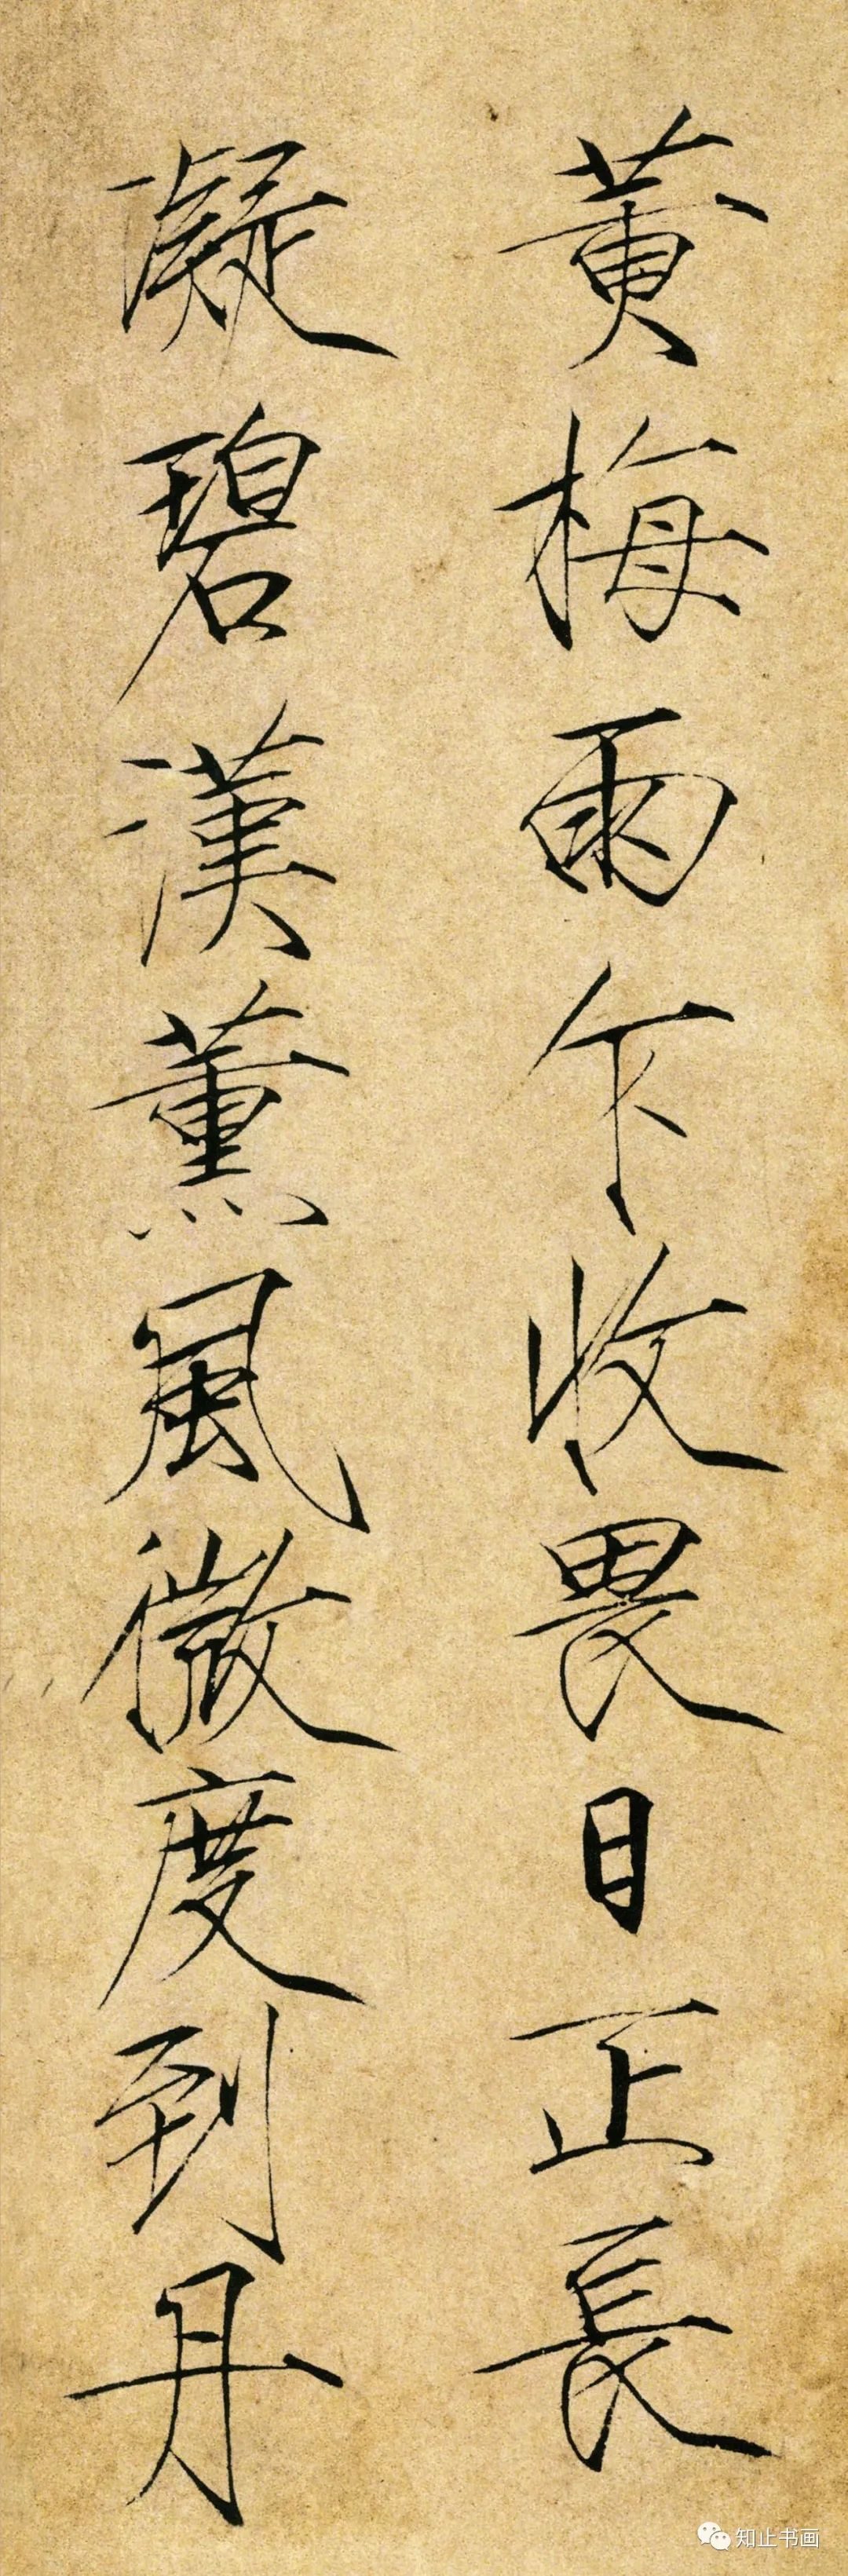 黃梅雨乍收畏日正長
凝碧漢薰風微度到丹
知止书画